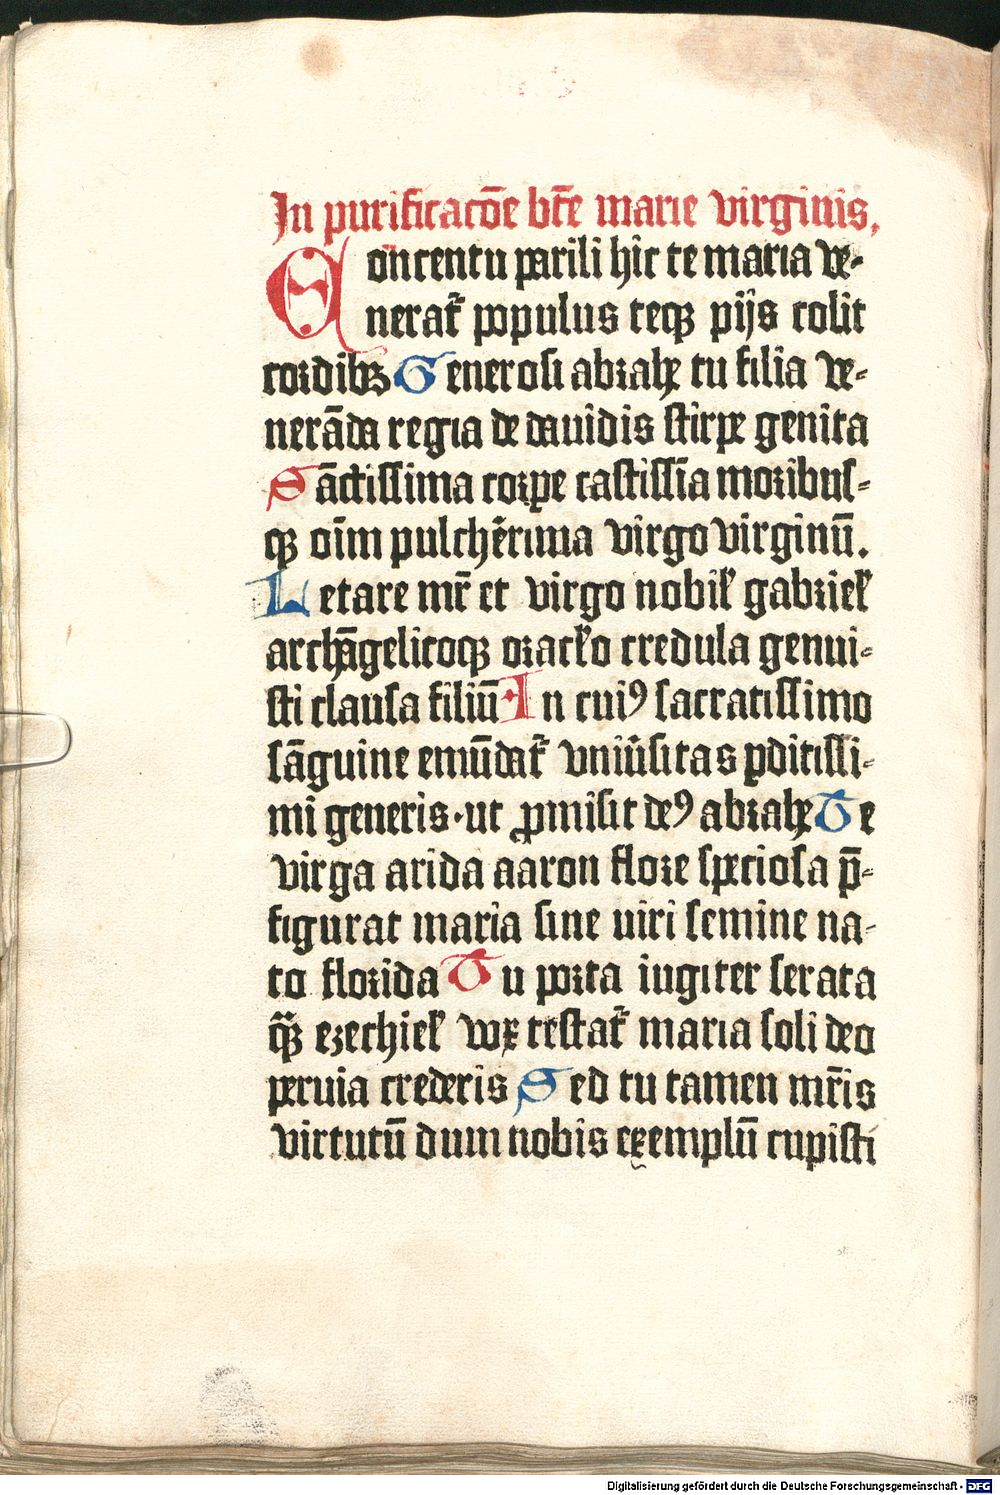 In purificacōe btē marie virginis,
Concentu parili hic te maria ve-
nerat᷑ populus teqꝫ pijs colit
cordibꝫ Generosi abrahe tu filia ve-
nerāda regia de dauidis stirpe genita
Sāctissima corpe castissīa moribus-
qꝫ oīm pulcherrima virgo virginū.
Letare mr̄ et virgo nobil̕ gabriel̕
archāgelicoqꝫ oracl̕o credula genui-
sti clausa filiū In cuiꝰ sacratissimo
sāguine emūdat᷑ vniūsitas ꝑditissi-
mi generis·ut ꝓmisit deꝰ abrahe Te
virga arida aaron flore speciosa p̄-
figurat maria sine uiri semine na-
to florida Tu porta iugiter serata
q̄ꝫ ezechiel̕ vox testat᷑ maria soli deo
peruia crederis Sed tu tamen mr̄is
virtutū dum nobis exemplū cupisti
Digitalisierung gefördert durch die Deutsche Forschungsgemeinschaft - DFG